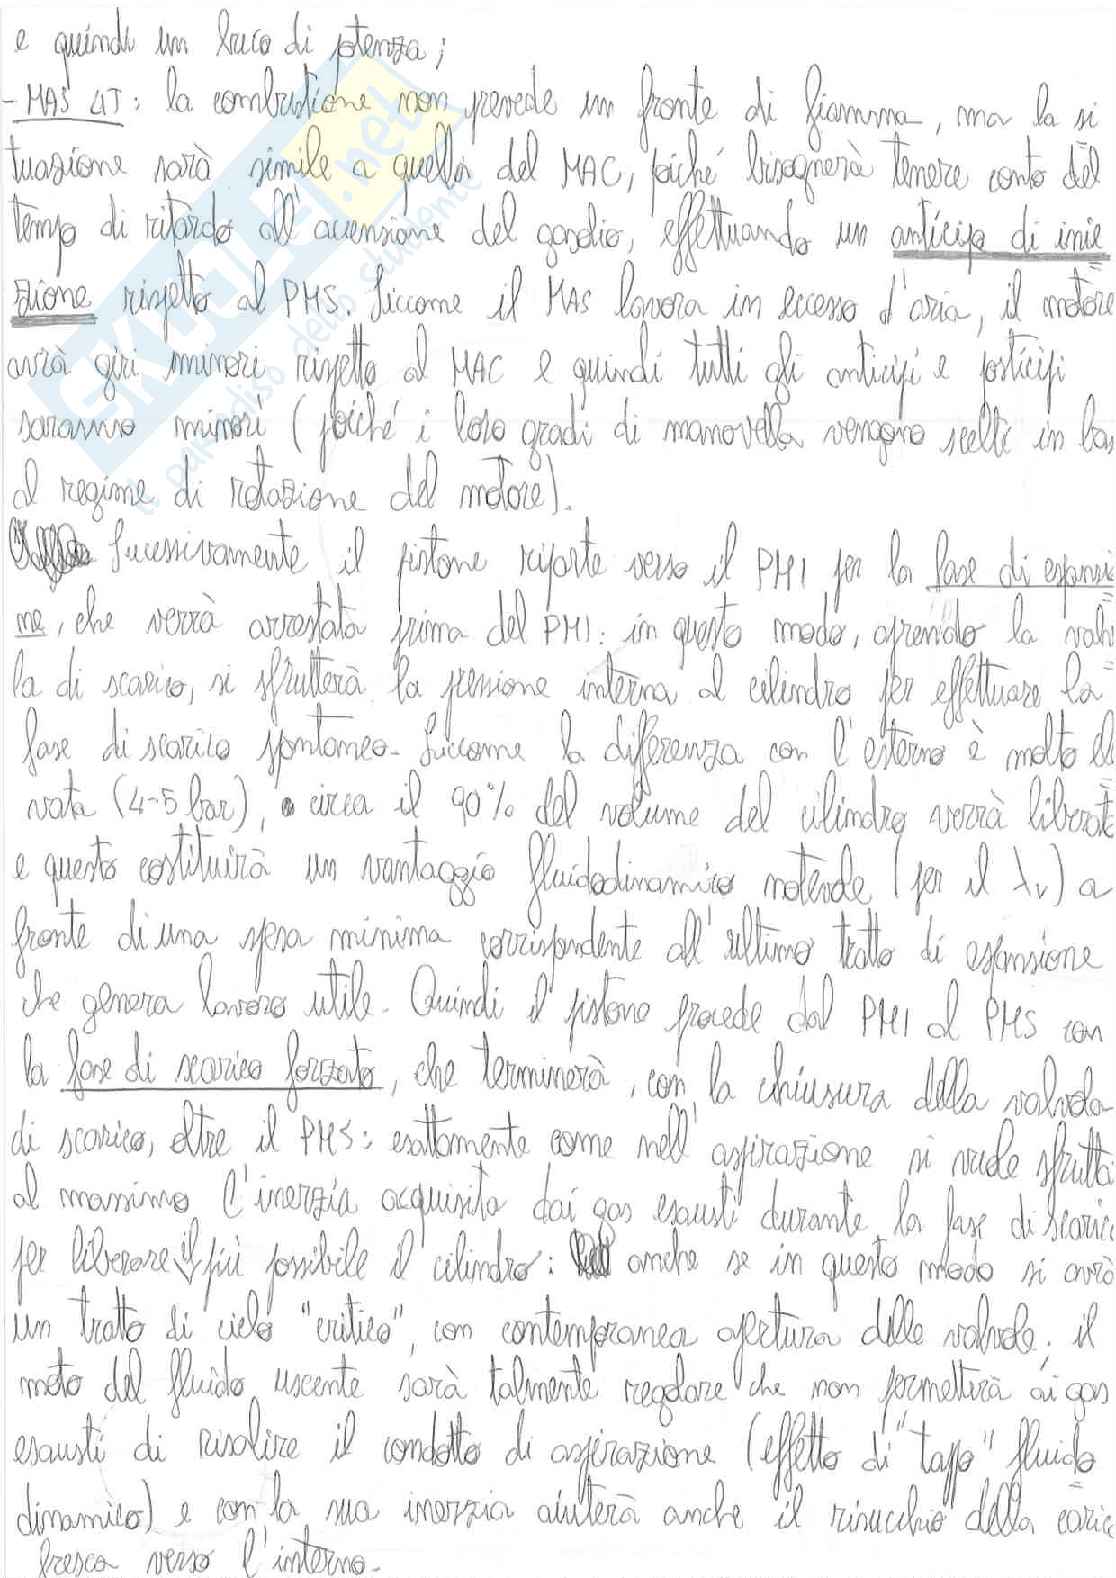 e quindi un buco di potenza;
- MAS 4T: la combustione non prevede un fronte di fiamma, ma la si
tuazione sarà simile a quella del MAC, poiché bisognerà tenere conto del
tempo di ritardo all'accensione del gasolio, effettuando un anticipo di inie
zione rispetto al PMS. Siccome il MAS lavora in eccesso d'aria, il motore
avrà giri minori rispetto al MAC e quindi tutti gli anticipi e posticipi
saranno minori (poiché i loro gradi di manovella vengono scelti in bas
al regime di rotazione del motore).
Sucessivamente il pistone riparte verso il PMI per la fase di espansi
ne, che verrà arrestata prima del PMI: in questo modo, aprendo la valv
la di scarico, si sfrutterà la pressione interna al cilindro per effettuare la
fase di scarico spontaneo. Siccome la differenza con l'esterno è molto ele
vata (4-5 bar), circa il 90% del volume del cilindro verrà liberato
e questo costituirà un vantaggio fluidodinamico notevole (per il λv) a
fronte di una spesa minima corrispondente all'ultimo tratto di espansione
che genera lavoro utile. Quindi il pistone procede dal PMI al PMS con
la fase di scarico forzato, che terminerà, con la chiusura della valvola
di scarico, oltre il PMS: esattamente come nell'aspirazione si vuole sfrutta
al massimo l'inerzia acquisita dai gas esausti durante la fase di scaric
per liberare il più possibile il cilindro: anche se in questo modo si avrà
un tratto di ciclo "critico", con contemporanea apertura delle valvole, il
moto del fluido uscente sarà talmente regolare che non permetterà ai gas
esausti di risalire il condotto di aspirazione (effetto di "tappo" fluido
dinamico) e con la sua inerzia aiuterà anche il risucchio della caric
fresca verso l'interno.
SKUOLA.net
il paradiso dello studente